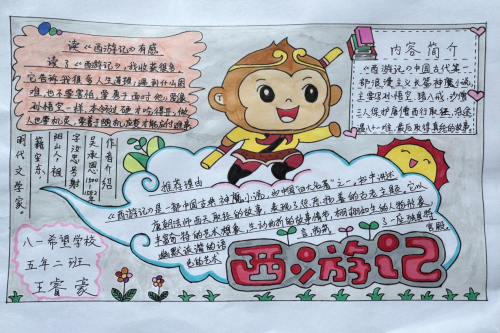 读《西游记》有感
读了《西游记》,我收获很多,
它告诉我很多人生道理,遇到什么困
难,也不要害怕,要勇于面对,他要像
孙悟空一样,本领过硬才吃得开,做
人也要机灵,要善于随机应变才能应付难事
内容简介
《西游记》中国古代第一
部浪漫主义长篇神魔小说,
主要写孙悟空、猪八戒、沙僧
三人保护唐僧西行取经,沿途
八十一难,最后取得真经的故事。
作者介绍
吴承恩
字汝忠号射
阳山人。祖
籍安东,
明代文学家。
推荐理由
《西游记》是一部中国古典神魔小说,为中国“四大名著”之一,书中讲述
唐朝法师西天取经的故事,表现了惩恶扬善的古老主题,它以
丰富奇特的艺术想象、生动曲折的故事情节,栩栩如生的人物形象,
幽默诙谐的语言,构筑了一座独具特
色的艺术宫殿。
西游记
八一希望学校
五年二班
王睿豪